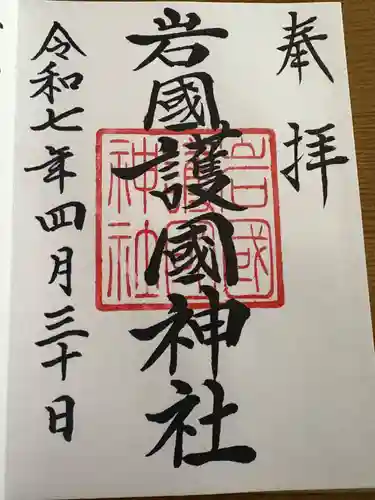 奉拝
岩國護國神社
岩國護國神社
令和七年四月三十日